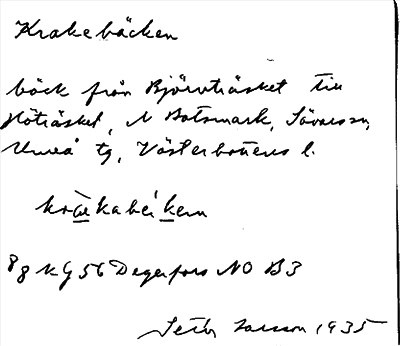 Krakebäcken
bäck från Björnträsket till
Höträsket, N Botsmark, Sävar sn,
Umeå tg, Västerbottens l.
kragkabeḱkem
88 KG 56 Degerfors NO B3
Seth Larsson 1935